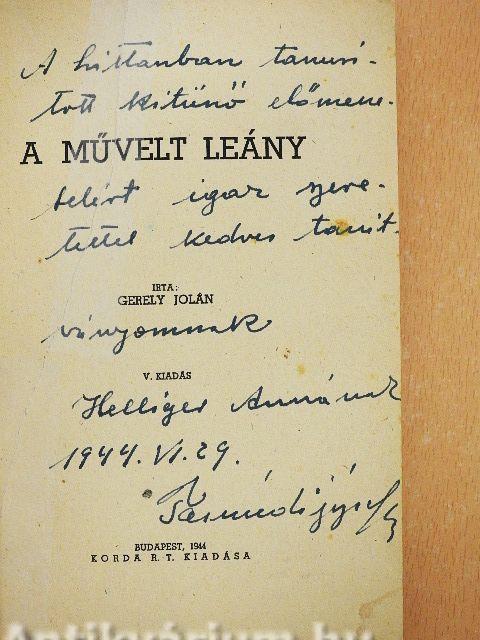 A hittanban tanusí-
tott kitünő előmene-
A MŰVELT LEÁNY
telért igaz szere-
tettel kedves tanít-
IRTA:
GERELY JOLÁN
ványomnak
V. KIADÁS
Helliger Annának
1944. VI. 29.
BUDAPEST, 1944
KORDA R. T. KIADÁSA
Antikvárium.hu